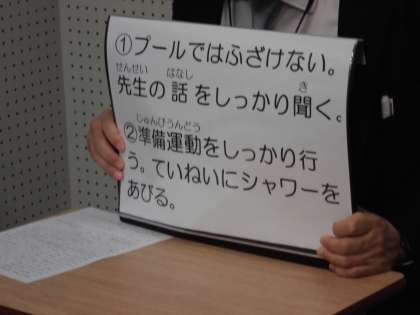 ①プールではふざけない。
せんせい はなし き
先生の 話 をしっかり聞く。
じゅんびうんどう
②準備運動をしっかり行
う。ていねいにシャワーを
あびる。